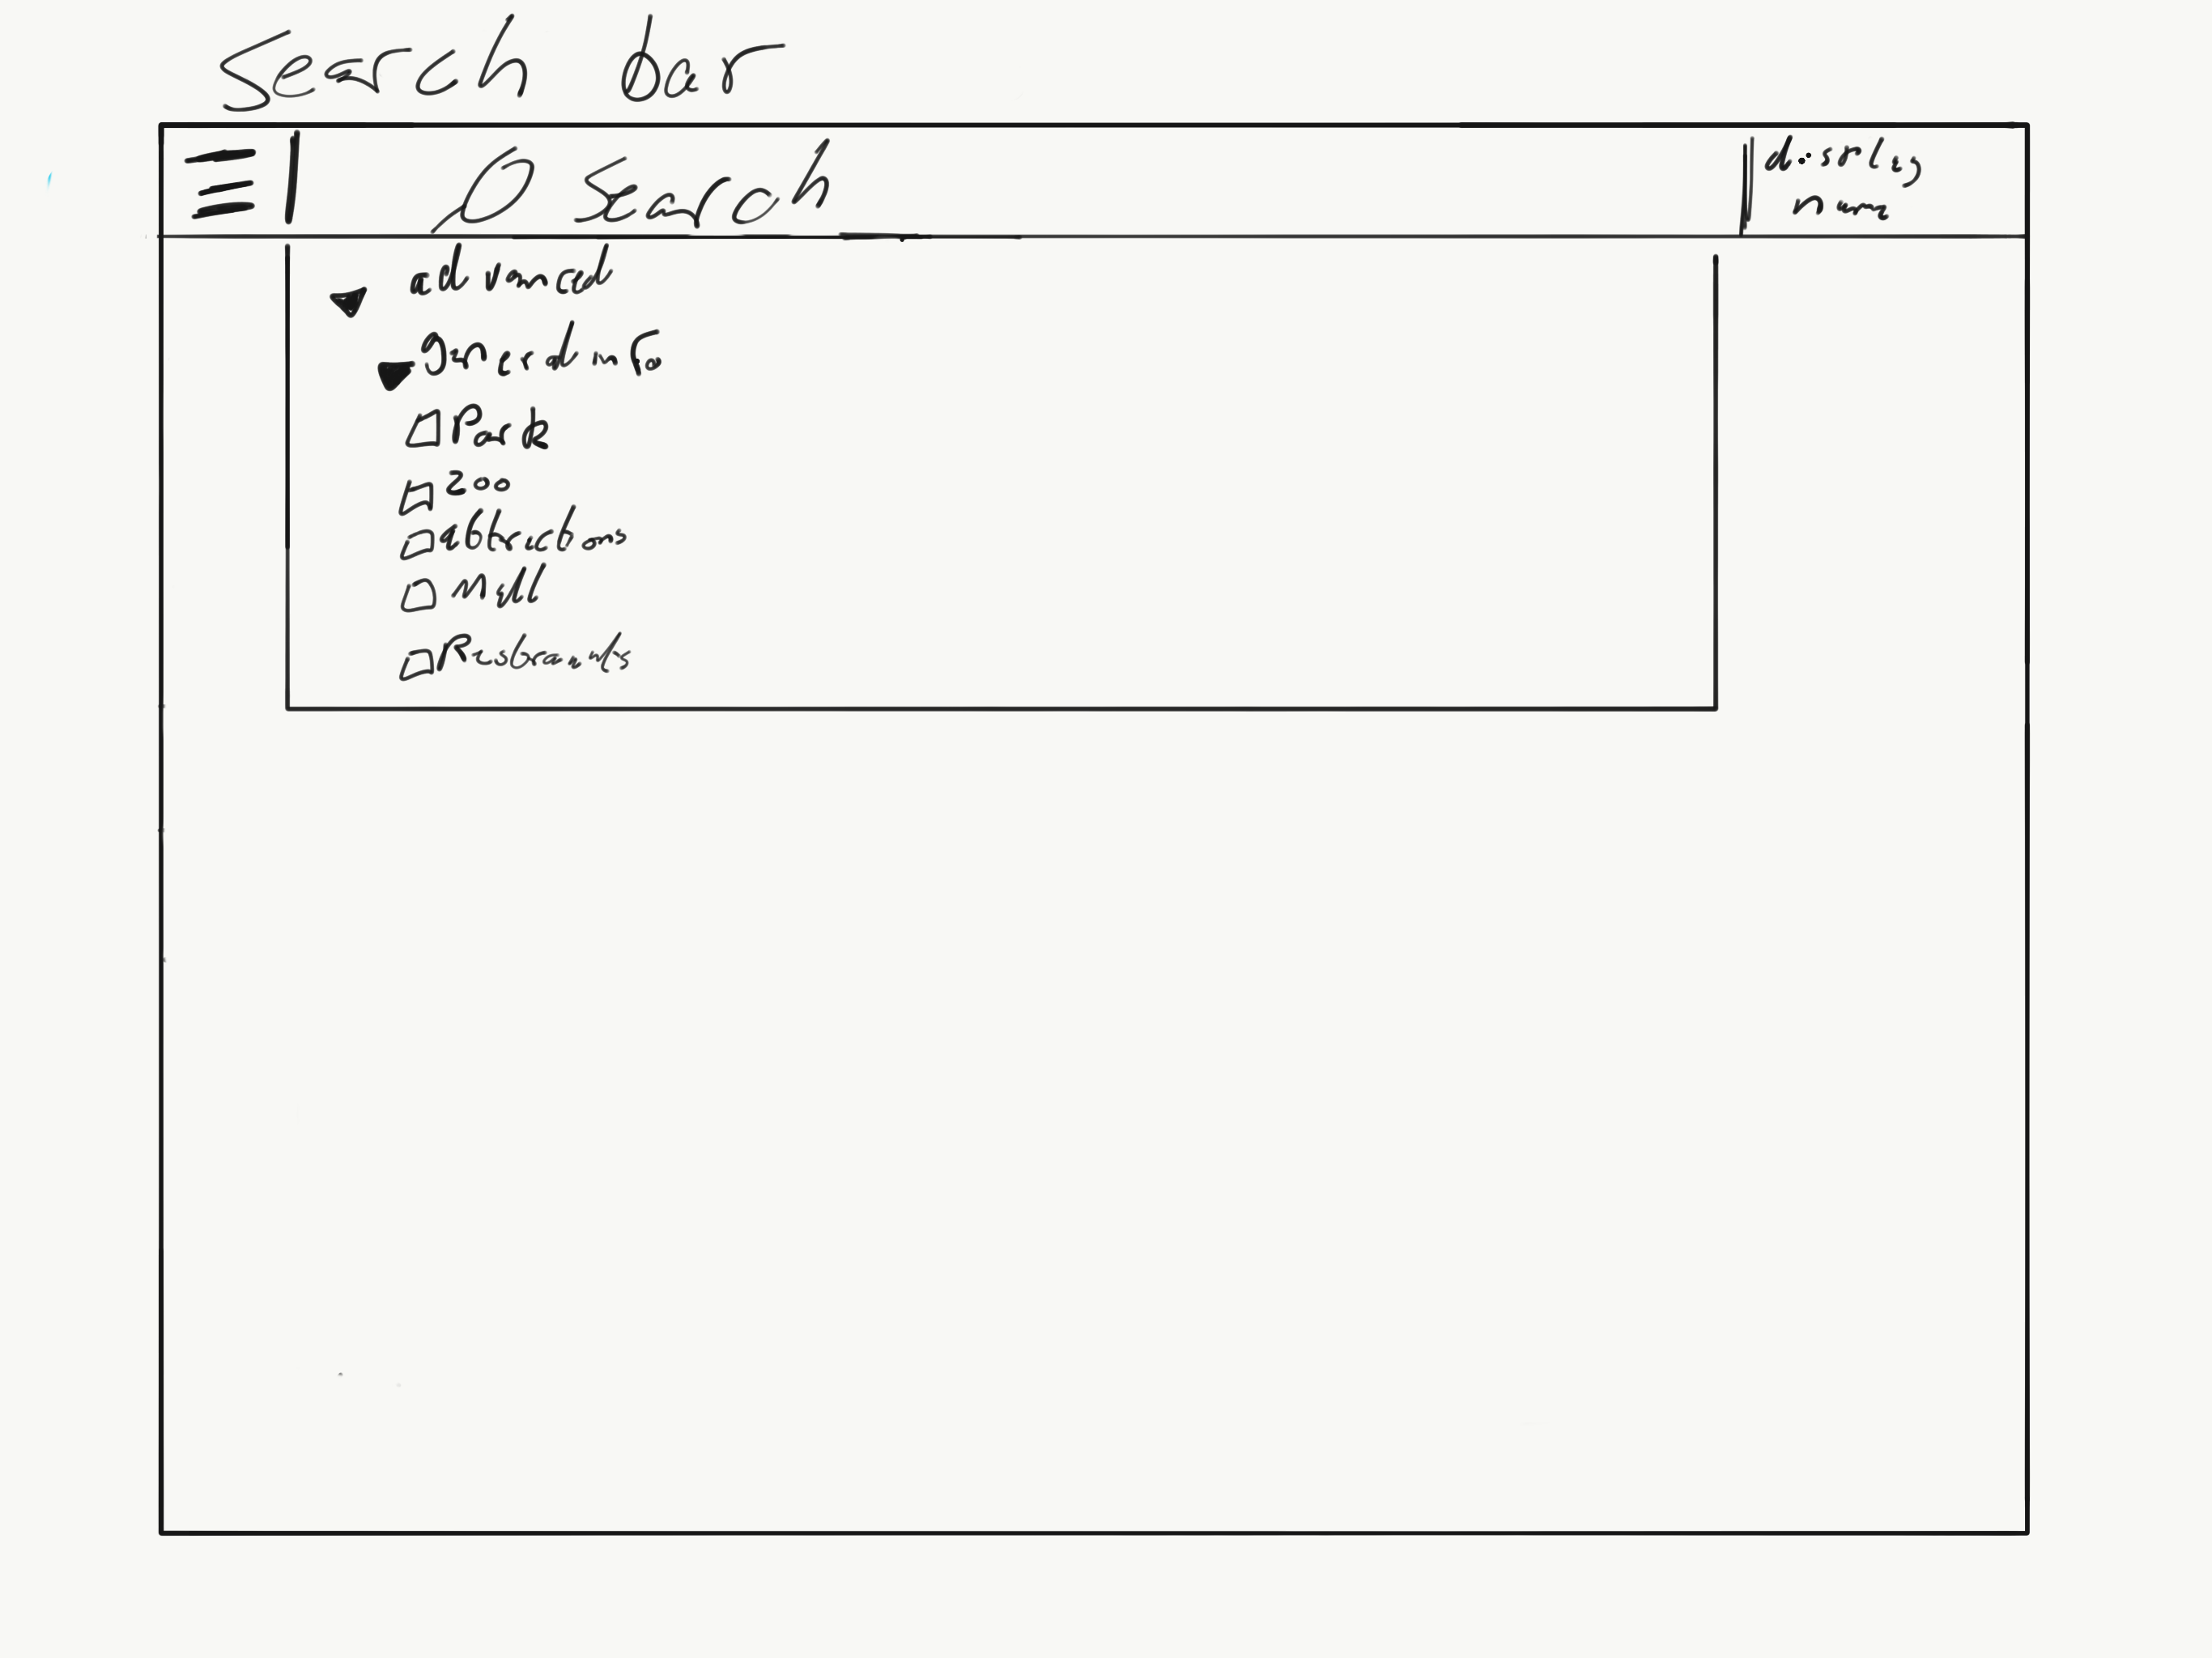 Search bar
Search
display
name
advanced
General info
Park
Zoo
attractions
Mall
Restraunts